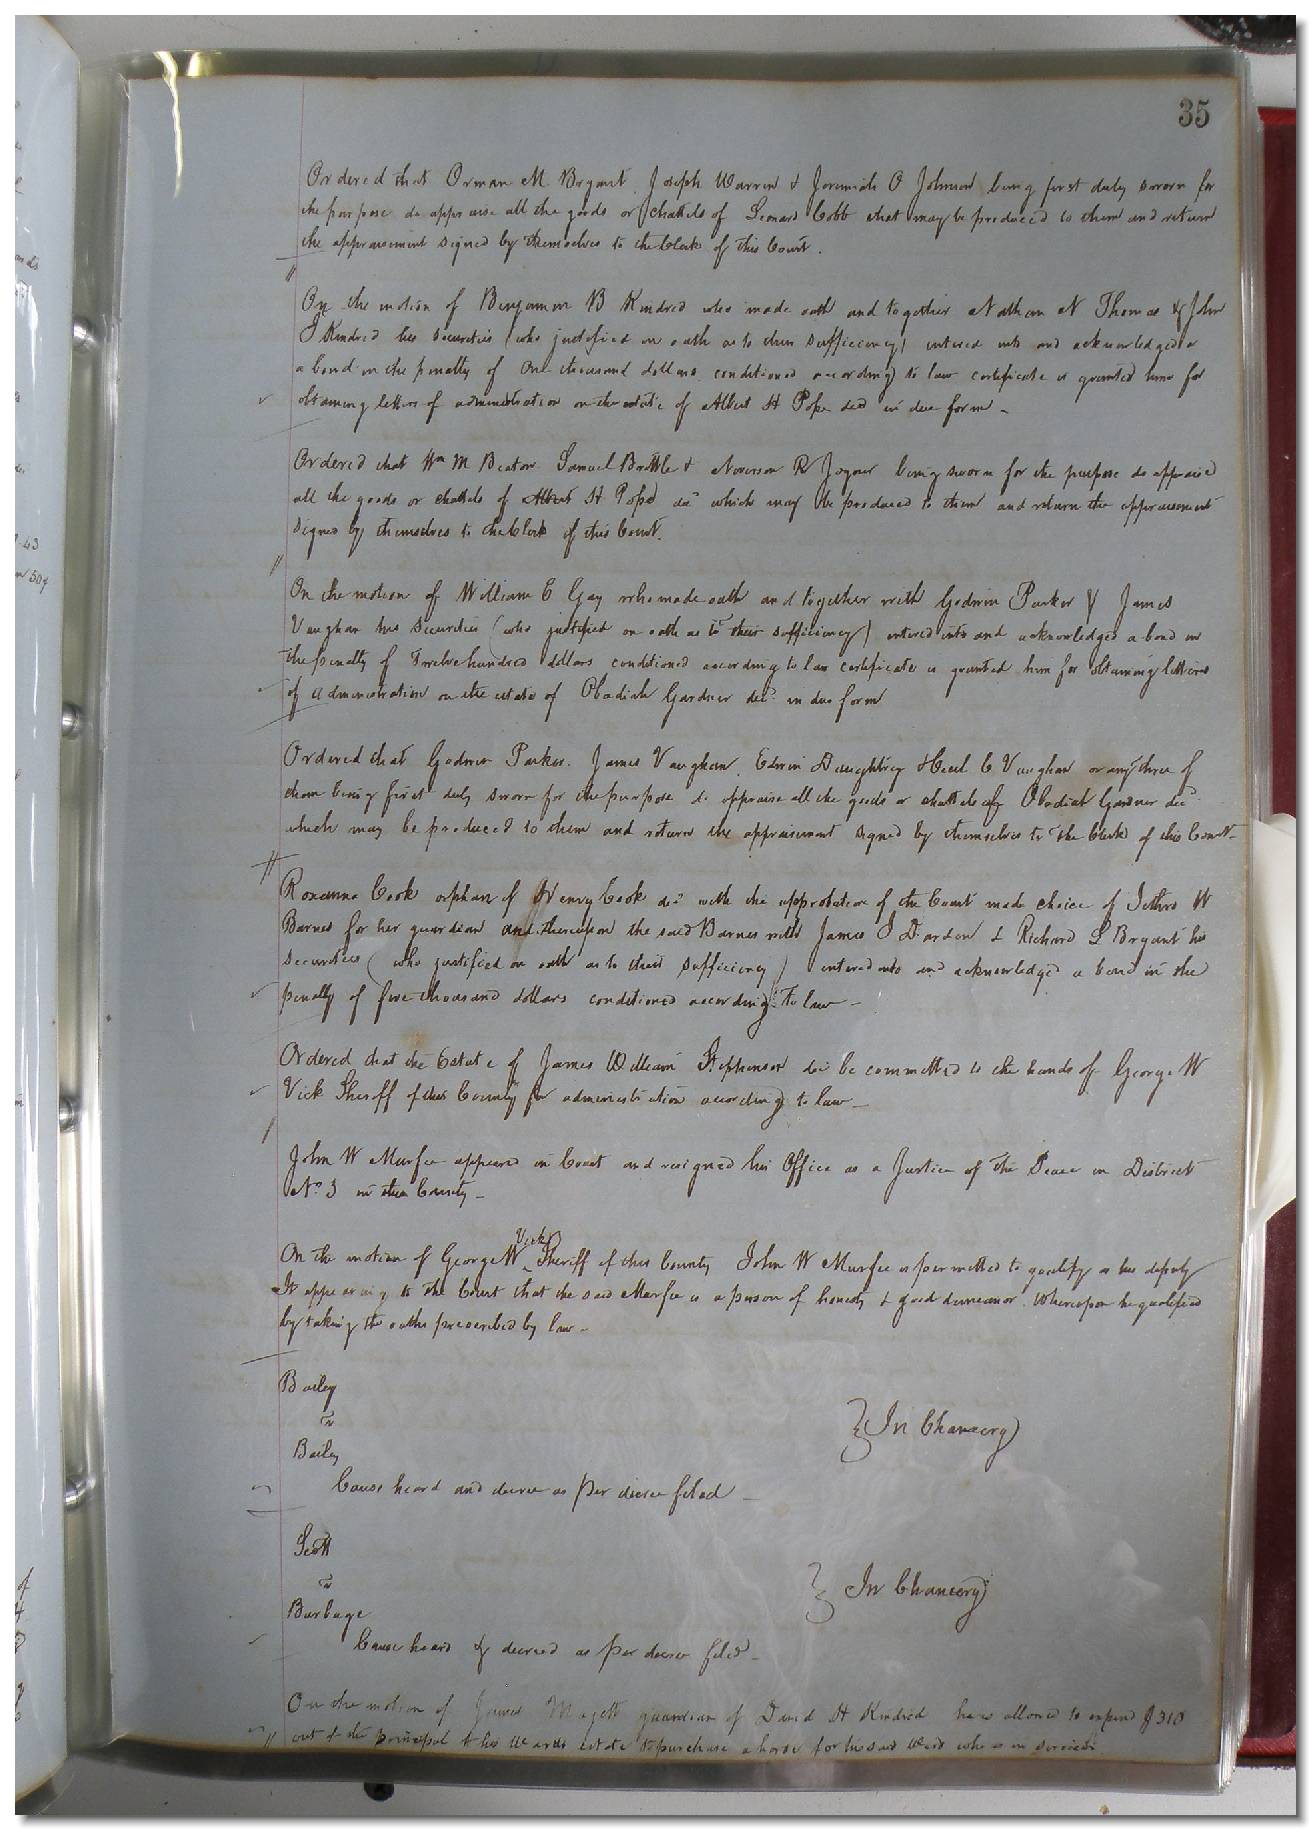 35
Ordered that Orman M Bryant Joseph Warren & Jeremiah O Johnson being first duly sworn for
the purpose do appraise all the goods or chattels of Leonard Cobb that may be produced to them and return
the appraisement signed by themselves to the Clerk of this Court.
On the motion of Benjamin B Kindred who made oath and together Nathan N Thomas & John
J Kindred his securities (who justified on oath as to their sufficiency) entered into and acknowledged
a bond in the penalty of One thousand dollars conditioned according to law certificate is granted him for
obtaining letters of administration on the estate of Albert H Pope decd in due form -
Ordered that Wm M Beaton Samuel Brittle & R Joyner being sworn for the purpose do appraise
all the goods or chattels of Albert H Pope decd which may be produced to them and return the appraisement
signed by themselves to the Clerk of this Court.
On the motion of William E Gay who made oath and together with Godwin Parker & James
Vaughan his securities (who justified on oath as to their sufficiency) entered into and acknowledged a bond in
the penalty of Twelve hundred dollars conditioned according to law certificate is granted him for obtaining letters
of administration on the estate of Obadiah Gardner decd in due form
Ordered that Godwin Parker. James Vaughan, Edwin Daughtrey & Cecil C Vaughan or any three of
them being first duly sworn for the purpose do appraise all the goods or chattels of Obadiah Gardner decd
which may be produced to them and return the appraisement signed by themselves to the Clerk of this Court -
Roxanna Cook orphan of Henry Cook decd with the approbation of the Court made choice of Jethro W
Barnes for her guardian and thereupon the said Barnes with James J Darden & Richard L Bryant his
securities (who justified on oath as to their sufficiency) entered into and acknowledged a bond in the
penalty of five thousand dollars conditioned according to law -
Ordered that the Estate of James William Stephenson decd be committed to the hands of George W
Vick Sheriff of this County for administration according to law -
John W Murfee appeared in Court and resigned his Office as a Justice of the Peace in District
No 3 in this County -
On the motion of George W Vick Sheriff of this County John W Murfee is permitted to qualify as his deputy
It appearing to the Court that the said Murfee is a person of honesty & good demeanor. Whereupon he qualified
by taking the oaths prescribed by law -
Bailey
vs
Bailey
In Chancery
Cause heard and decree as per decree filed -
Scott
vs
Burbage
In Chancery
Cause heard & decreed as per decree filed -
On the motion of James Magett guardian of David H Kindred he is allowed to expend $310
out of the principal of his Wards estate to purchase a horse for his said Ward who is in service